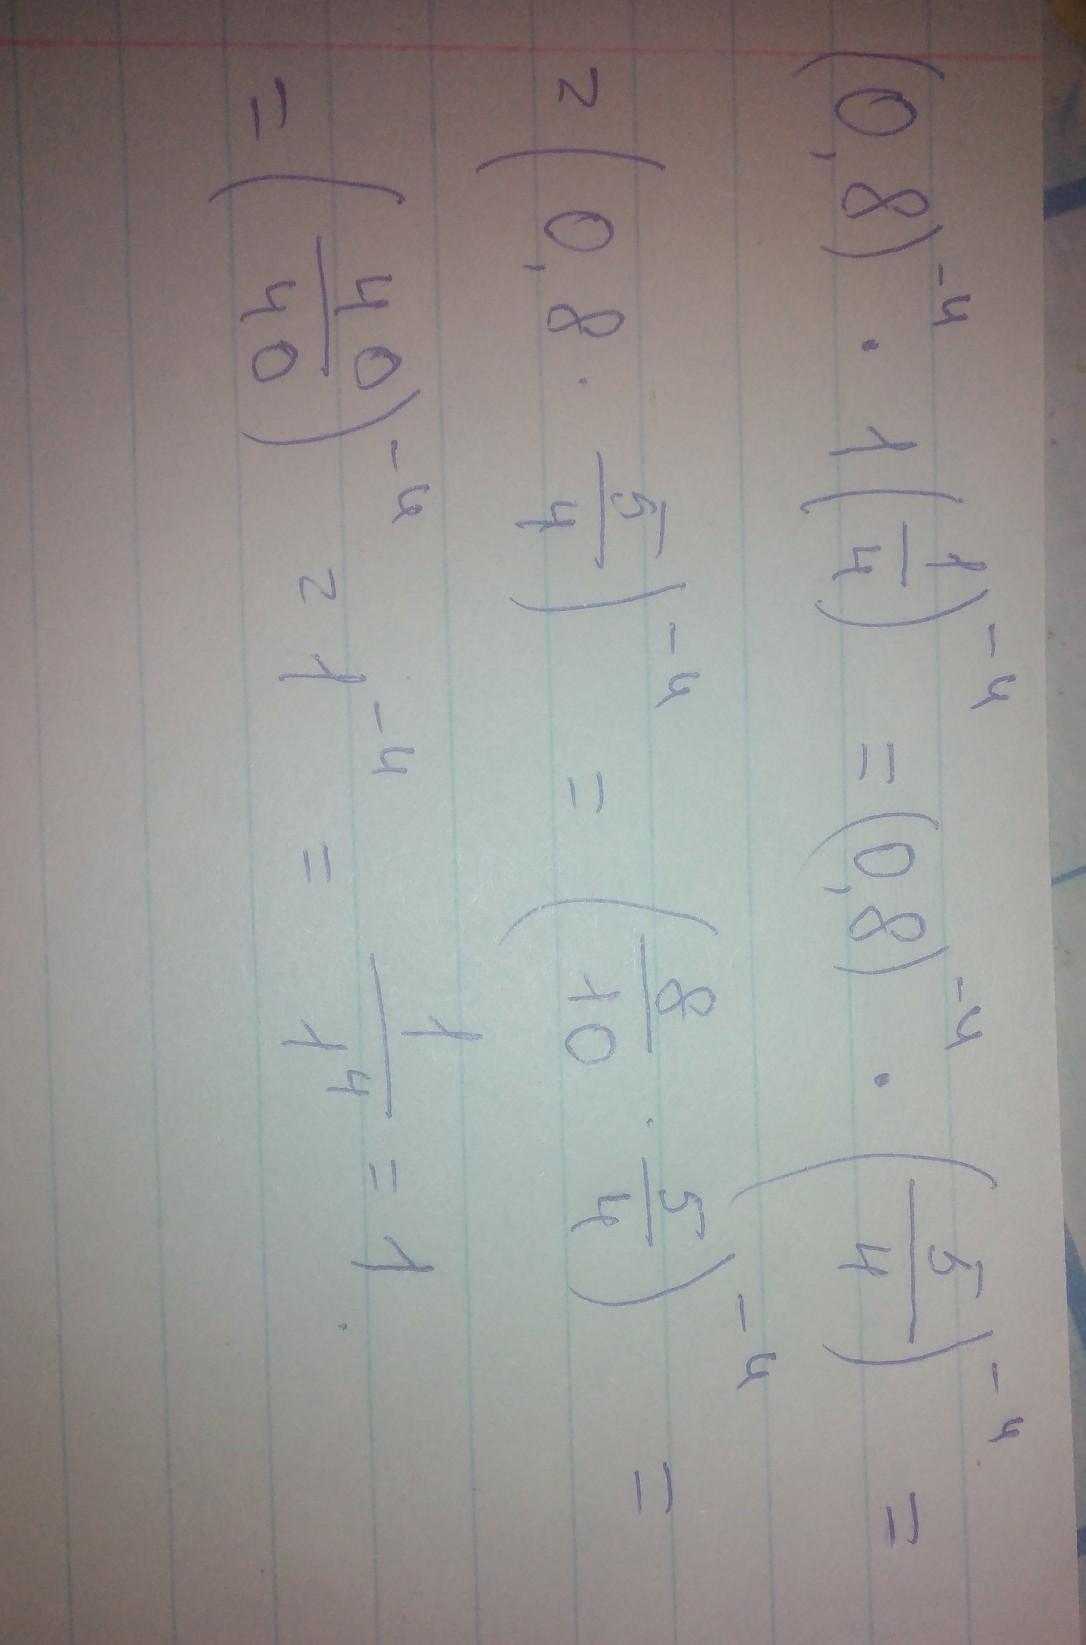 (0,8)⁻⁴ · 1(1/4)⁻⁴ = (0,8)⁻⁴ · (5/4)⁻⁴ =
= (0,8 · 5/4)⁻⁴ = (8/10 · 5/4)⁻⁴ =
= (40/40)⁻⁴ = 1⁻⁴ = 1/1⁴ = 1.